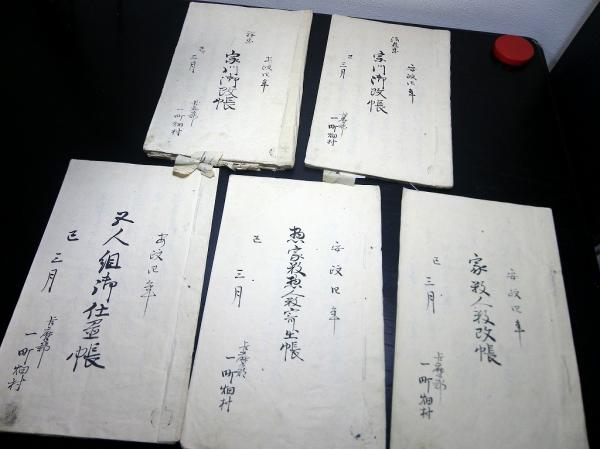 安政四年
宗門御改帳
巳三月
一町畑村
禅宗
安政四年
宗門御改帳
巳三月
一町畑村
安政四年
家数人数改帳
巳三月
一町畑村
安政四年
惣家数惣人数寄出帳
巳三月
一町畑村
安政四年
五人組御仕置帳
巳三月
一町畑村